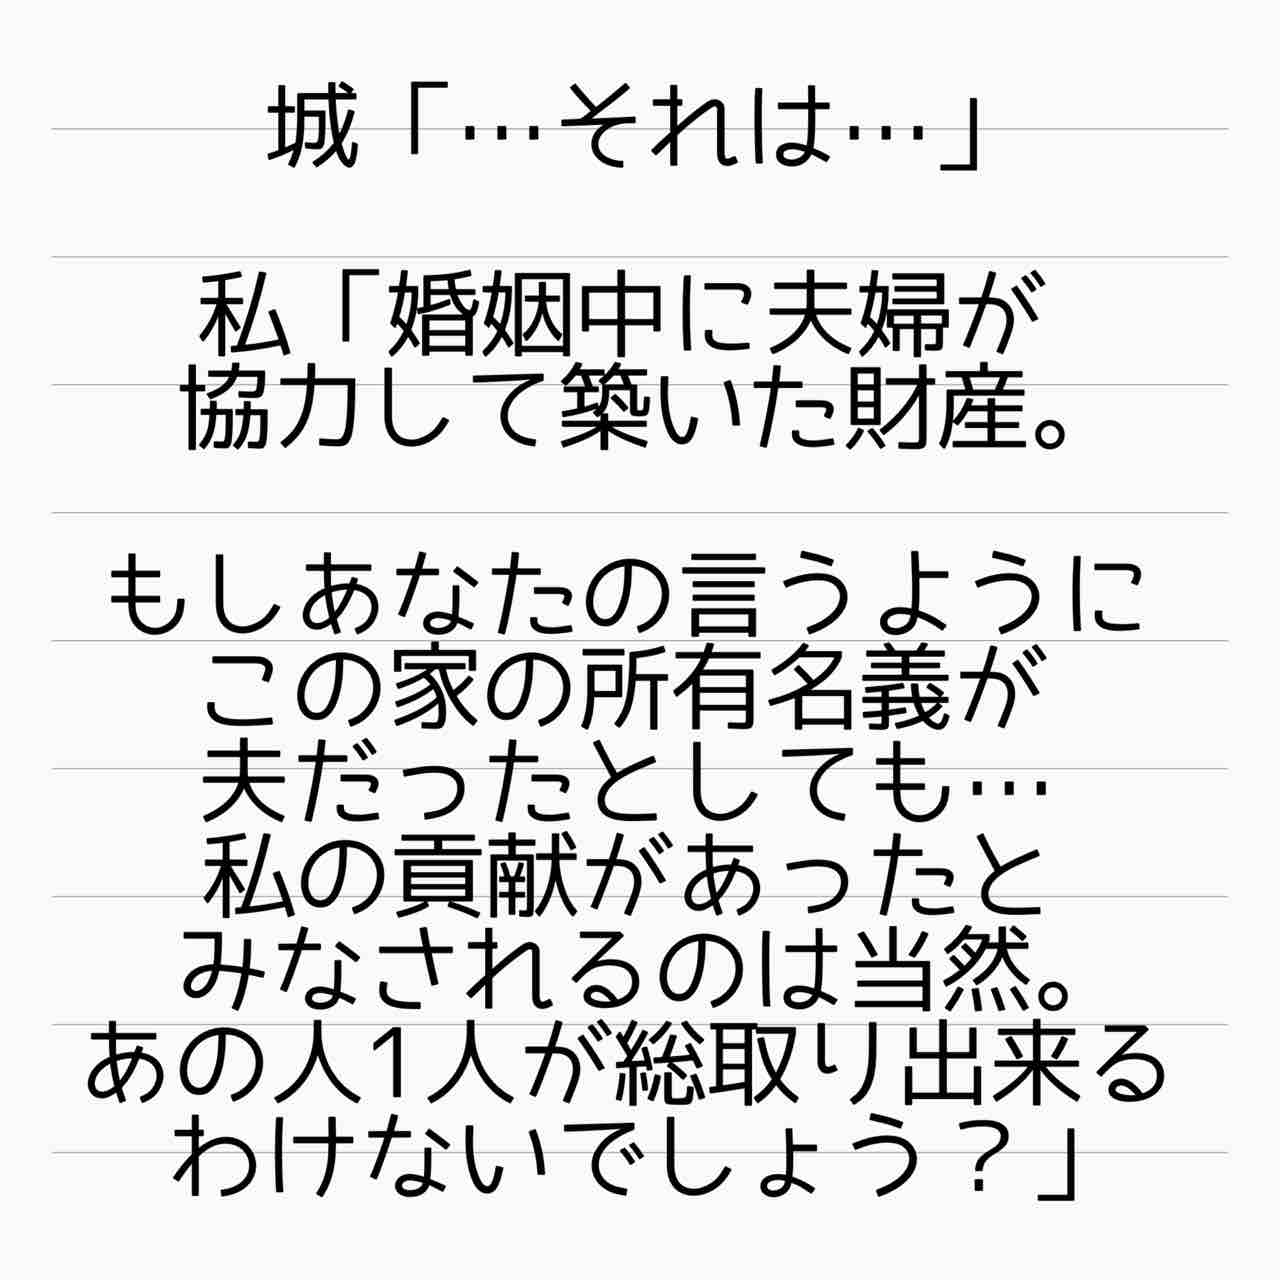 城「…それは…」
私「婚姻中に夫婦が
協力して築いた財産。
もしあなたの言うように
この家の所有名義が
夫だったとしても…
私の貢献があったと
みなされるのは当然。
あの人1人が総取り出来る
わけないでしょう？」